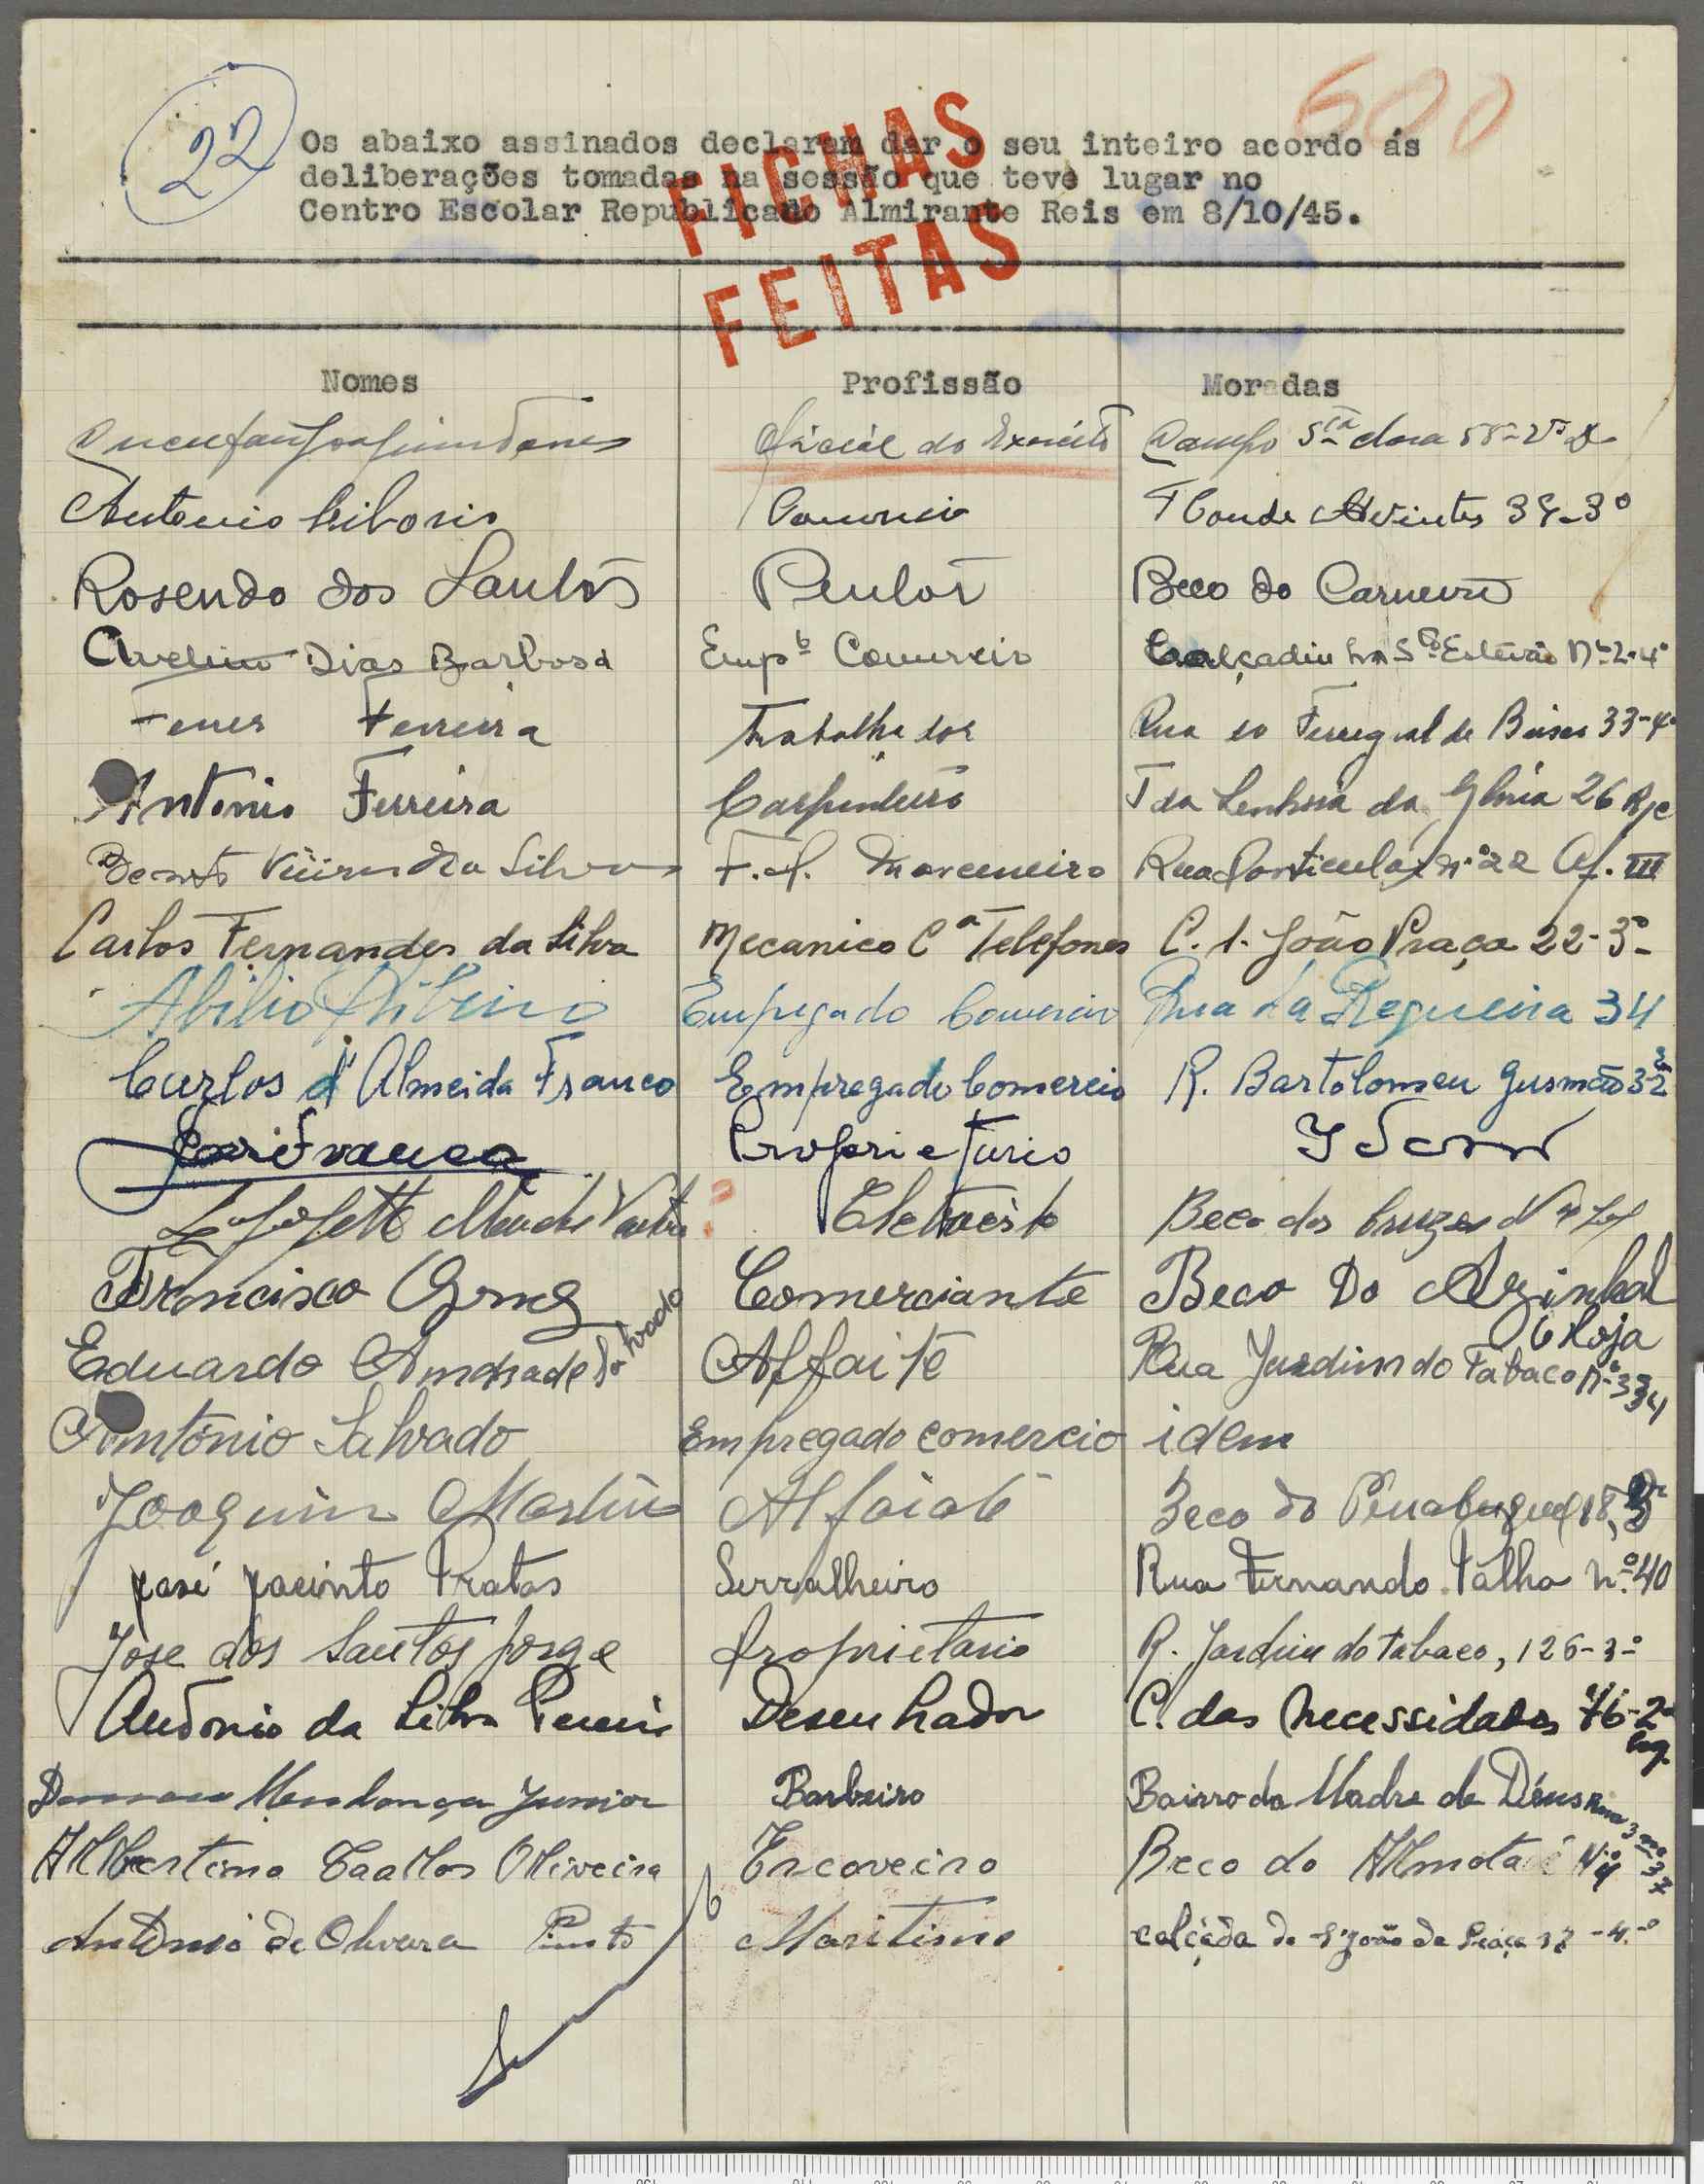 22
600
Os abaixo assinados declaram dar o seu inteiro acordo ás
deliberações tomadas na sessão que teve lugar no
Centro Escolar Republicano Almirante Reis em 8/10/45.
FICHAS
FEITAS
Nomes Profissão Moradas
Oficial do Exercito Campo Sta Clara
Antonio Liborio Comercio T Conde Avintes 3º
Rosendo dos Santos Beco do Carneiro
Avelino Dias Barbosa Empº Comercio Sto Estevão Nº 2-4º
Ferreira Trabalhador Rua do 33-4º
Antonio Ferreira Carpinteiro T da Senhora da Glória 26 R/c
da Silva Marceneiro Rua Particular nº 22 III
Carlos Fernandes da Silva Mecanico Cª Telefones C. S. João Praça 22-3º
Abilio Ribeiro Empregado Comercio Rua da Regueira 34
Carlos d'Almeida Franco Empregado Comercio R. Bartolomeu Gusmão
Proprietario
Beco das Cruzes Nº
Francisco Comerciante Beco Do Azinhal
6 Loja
Eduardo Andrade Salvado Alfaite Rua Jardim do Tabaco Nº 334
António Salvado Empregado comercio idem
Joaquim Martins Alfaiate Beco do 18,
José Jacinto Pratas Serralheiro Rua Fernando Palha nº 40
Jose dos Santos Jorge Proprietario R. Jardim do Tabaco, 126-3º
António da Silva Pereira Desenhador C. das Necessidades 76-2º
Esq.
Mendonça Junior Barbeiro Bairro da Madre de Déus Rua 3 nº 37
Albertino Carlos Oliveira Beco do Almotacé Nº 4
António de Oliveira Pinto Maritimo calçada de S. João da Praça -4.º